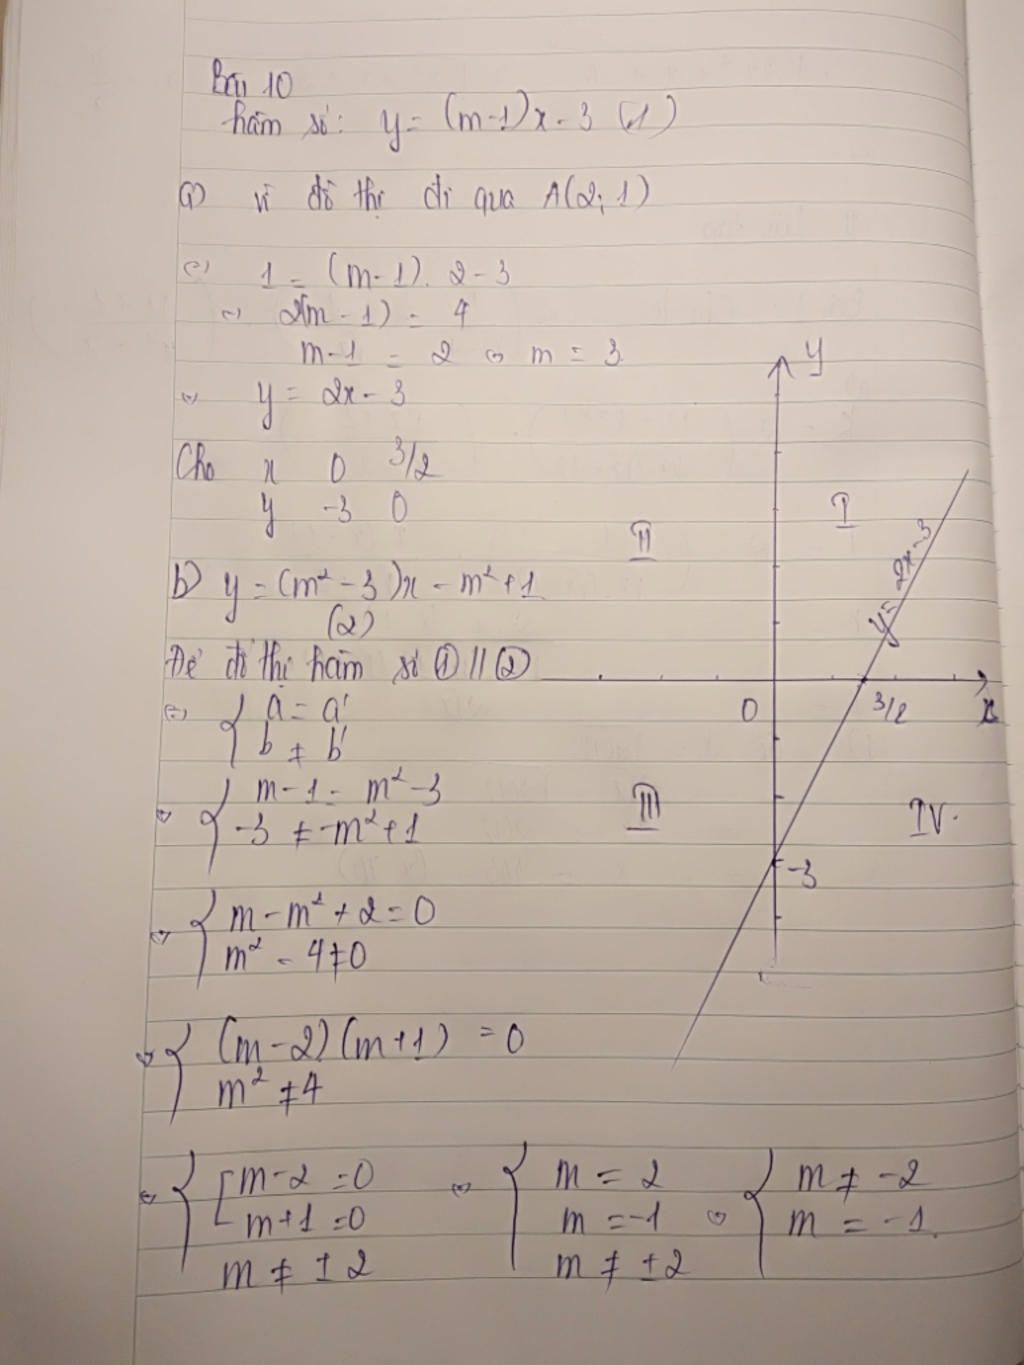 Bài 10
hàm số: y = (m-1)x - 3 (1)
a) vì đồ thị đi qua A(2; 1)
⇔ 1 = (m-1). 2 - 3
⇔ 2(m - 1) = 4
m-1 = 2 ⇔ m = 3
⇔ y = 2x - 3
Cho x 0 3/2
y -3 0
b) y = (m² - 3)x - m² + 1
(2)
Để đồ thị hàm số ① // ②
⇔ { a = a'
b ≠ b'
⇔ { m - 1 = m² - 3
-3 ≠ -m² + 1
⇔ { m - m² + 2 = 0
m² - 4 ≠ 0
⇔ { (m - 2)(m + 1) = 0
m² ≠ 4
⇔ { [ m - 2 = 0 ⇔ { m = 2 ⇔ { m ≠ -2
m + 1 = 0 m = -1 m = -1.
m ≠ ± 2 m ≠ ± 2
y
I
II
y = 2x - 3
0
3/2
x
III
IV.
-3